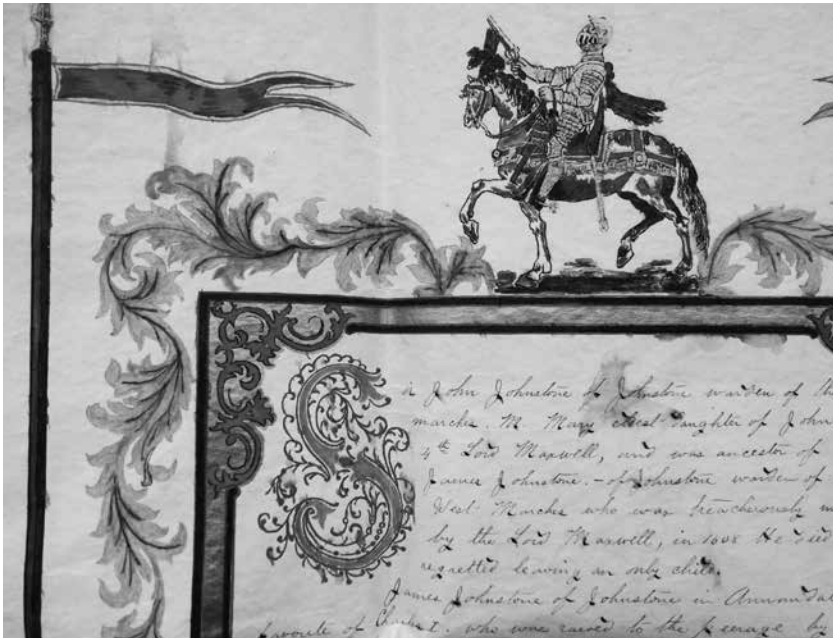 Sir John Johnstone of Johnstone warden of the
marches. M. Mary eldest daughter of John
4th Lord Maxwell, and was ancestor of
James Johnstone. - of Johnstone warden of
West Marches who was treacherously
by the Lord Maxwell, in 1608 He died
regretted leaving an only child.
James Johnstone of Johnstone in
favorite of Charles I. who was raised to the peerage by